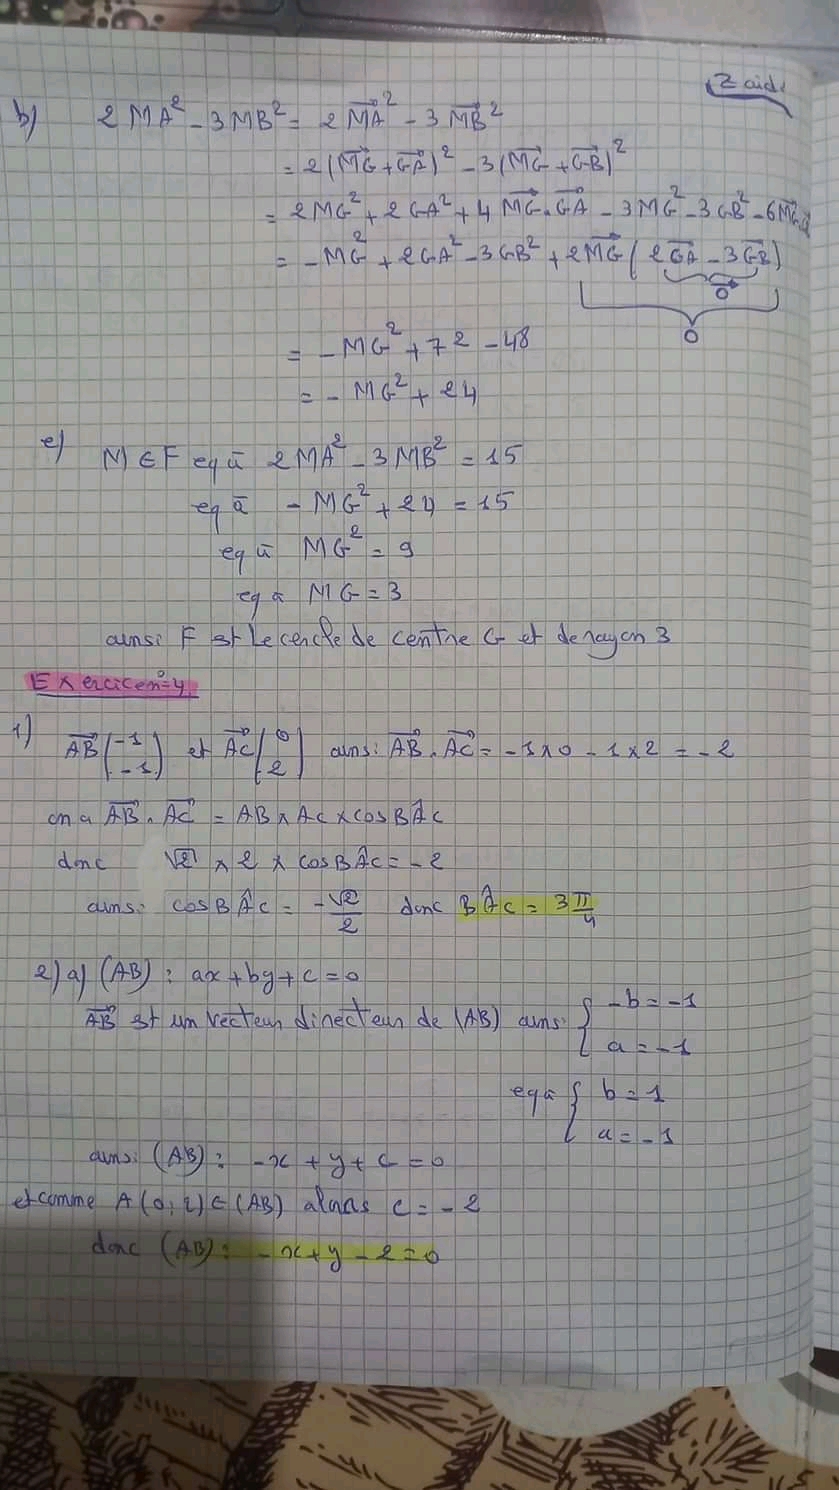 Zaidi
b) 2MA² - 3MB² = 2\overrightarrow{MA}² - 3\overrightarrow{MB}²
= 2(\overrightarrow{MG} + \overrightarrow{GA})² - 3(\overrightarrow{MG} + \overrightarrow{GB})²
= 2MG² + 2GA² + 4\overrightarrow{MG}.\overrightarrow{GA} - 3MG² - 3GB² - 6
= -MG² + 2GA² - 3GB² + 2\overrightarrow{MG}(2\overrightarrow{GA} - 3\overrightarrow{GB})
\overrightarrow{0}
0
= -MG² + 72 - 48
= -MG² + 24
c) M ∈ F eq à 2MA² - 3MB² = 15
eq à -MG² + 24 = 15
eq à MG² = 9
eq à MG = 3
ainsi F est le cercle de centre G et de rayon 3
Exercice n°=4
1) \overrightarrow{AB}(-1 -1) et \overrightarrow{AC}(0 2) ainsi \overrightarrow{AB}.\overrightarrow{AC} = -1×0 - 1×2 = -2
on a \overrightarrow{AB}.\overrightarrow{AC} = AB × AC × cos BÂC
donc √2 × 2 × cos BÂC = -2
ainsi cos BÂC = -√2/2 donc BÂC = 3π/4
2) a) (AB) : ax + by + c = 0
\overrightarrow{AB} est un vecteur directeur de (AB) ainsi { -b = -1
a = -1
eq à { b = 1
a = -1
ainsi (AB) : -x + y + c = 0
et comme A(0, 2) ∈ (AB) alors c = -2
donc (AB) : -x + y - 2 = 0